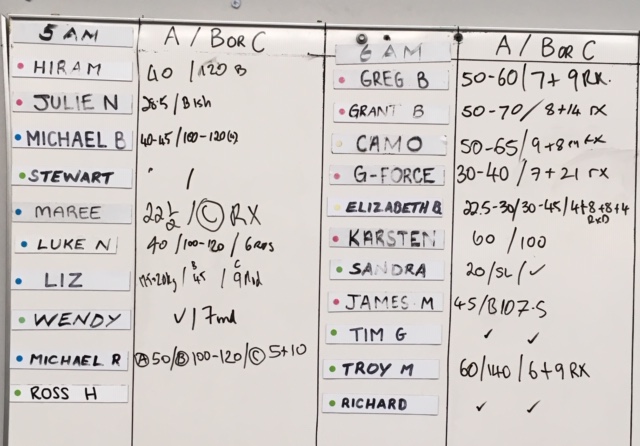 5 AM A / B or C
HIRAM 40 / 120 B
JULIE N 28.5 / Bish
MICHAEL B 40-45 / 100-120
STEWART " /
MAREE 22½ / Ⓒ RX
LUKE N 40 / 100-120 / 6
LIZ 20kg / B 45 / C 9
WENDY ✓ / 7
MICHAEL R Ⓐ 50 / Ⓑ 100-120 / Ⓒ 5+10
ROSS H
6 AM A / B or C
GREG B 50-60 / 7+9 RX.
GRANT B 50-70 / 8+14 rx
CAMO 50-65 / 9+8 RX
G-FORCE 30-40 / 7+21 rx
ELIZABETH B 22.5-30 / 30-45 / 4+8+8+4
RxD
KARSTEN 60 / 100
SANDRA 20 / SL / ✓
JAMES M 45 / B 107.5
TIM G ✓ ✓
TROY M 60 / 140 / 6+9 RX
RICHARD ✓ ✓